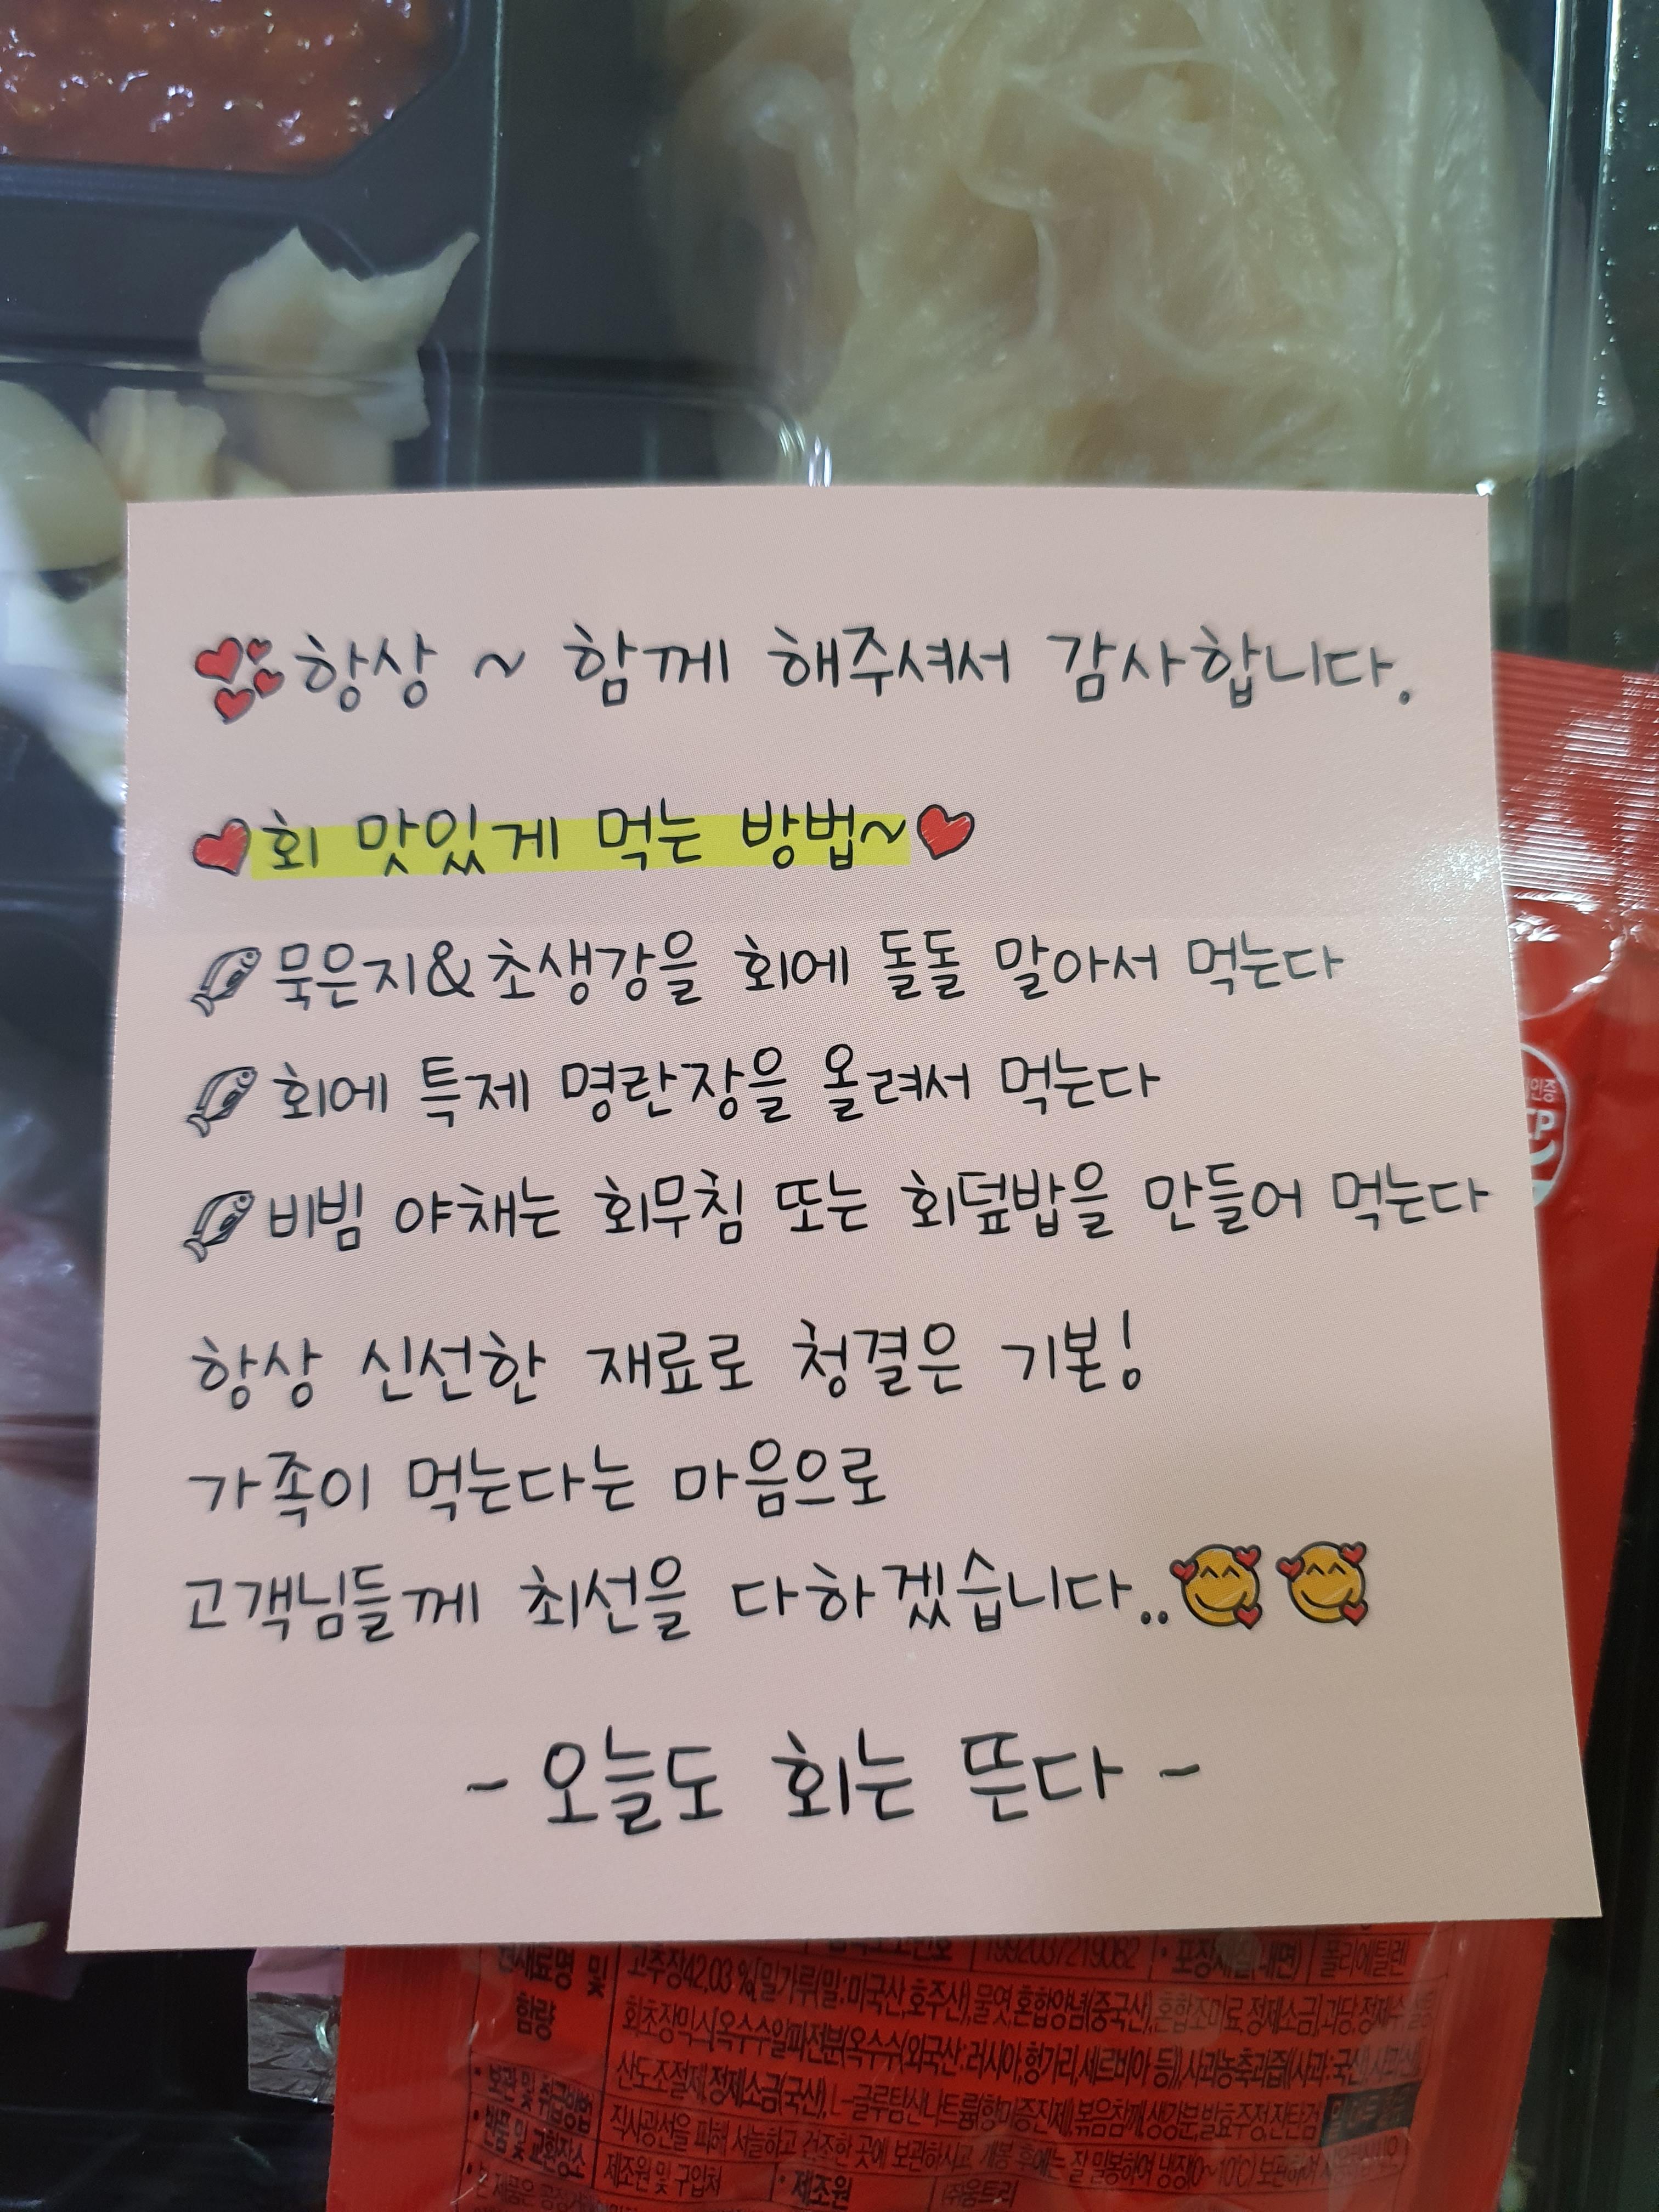 💞항상 ~ 함께 해주셔서 감사합니다.
❤회 맛있게 먹는 방법~❤
묵은지&초생강을 회에 돌돌 말아서 먹는다
회에 특제 명란장을 올려서 먹는다
비빔 야채는 회무침 또는 회덮밥을 만들어 먹는다
항상 신선한 재료로 청결은 기본!
가족이 먹는다는 마음으로
고객님들께 최선을 다하겠습니다..🥰🥰
- 오늘도 회는 뜬다 -
인증
CP
19920037219082 • 포장재질(내면) 폴리에틸렌
및 고추장42.03 %{밀가루(밀:미국산,호주산),물엿,혼합양념(중국산),혼합조미료,정제소금},과당,정제수,
함량 옥수수알파전분{옥수수(외국산:러시아,헝가리,세르비아 등)},사과농축과즙(사과:국산)
산도조절제,정제소금(국산),L-글루탐산나트륨(향미증진제),볶음참깨,생강분,발효주정,잔탄검
• 보관 및 취급방법 직사광선을 피해 서늘하고 건조한 곳에 보관하시고 개봉 후에는 잘 밀봉하여 냉장(0~10℃) 보관하여
• 반품 및 교환장소 제조원 및 구입처 • 제조원 ㈜움트리